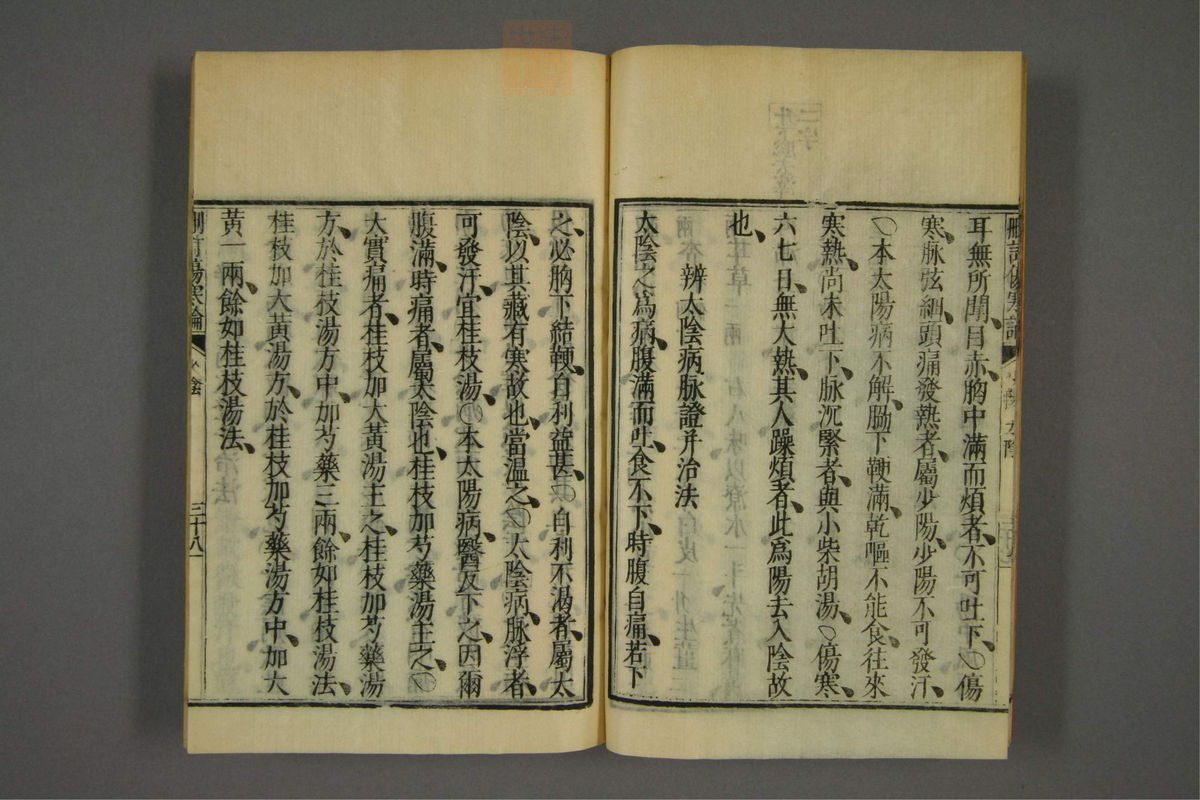 耳無所聞、目赤、胸中滿而煩者、不可吐下、○傷
寒脉弦細、頭痛發熱者、屬少陽、少陽不可發汗、
○本太陽病不解、脇下鞕滿、乾嘔不能食、往來
寒熱、尚未吐下、脉沉緊者、與小柴胡湯、○傷寒、
六七日、無大熱、其人躁煩者、此爲陽去入陰故
也、
辨太陰病脉證并治法
太陰之爲病、腹滿而吐、食不下、時腹自痛、若下
之、必胸下結鞕、自利益甚、○自利不渴者、屬太
陰、以其藏有寒故也、當溫之、○太陰病、脉浮者、
可發汗、宜桂枝湯、○本太陽病、醫反下之、因爾
腹滿、時痛者、屬太陰也、桂枝加芍藥湯主之、○
大實痛者、桂枝加大黃湯主之、桂枝加芍藥湯
方、於桂枝湯方中、加芍藥三兩、餘如桂枝湯法、
桂枝加大黃湯方、於桂枝加芍藥湯方中、加大
黃一兩、餘如桂枝湯法、
刪訂傷寒論
太陰
三十八